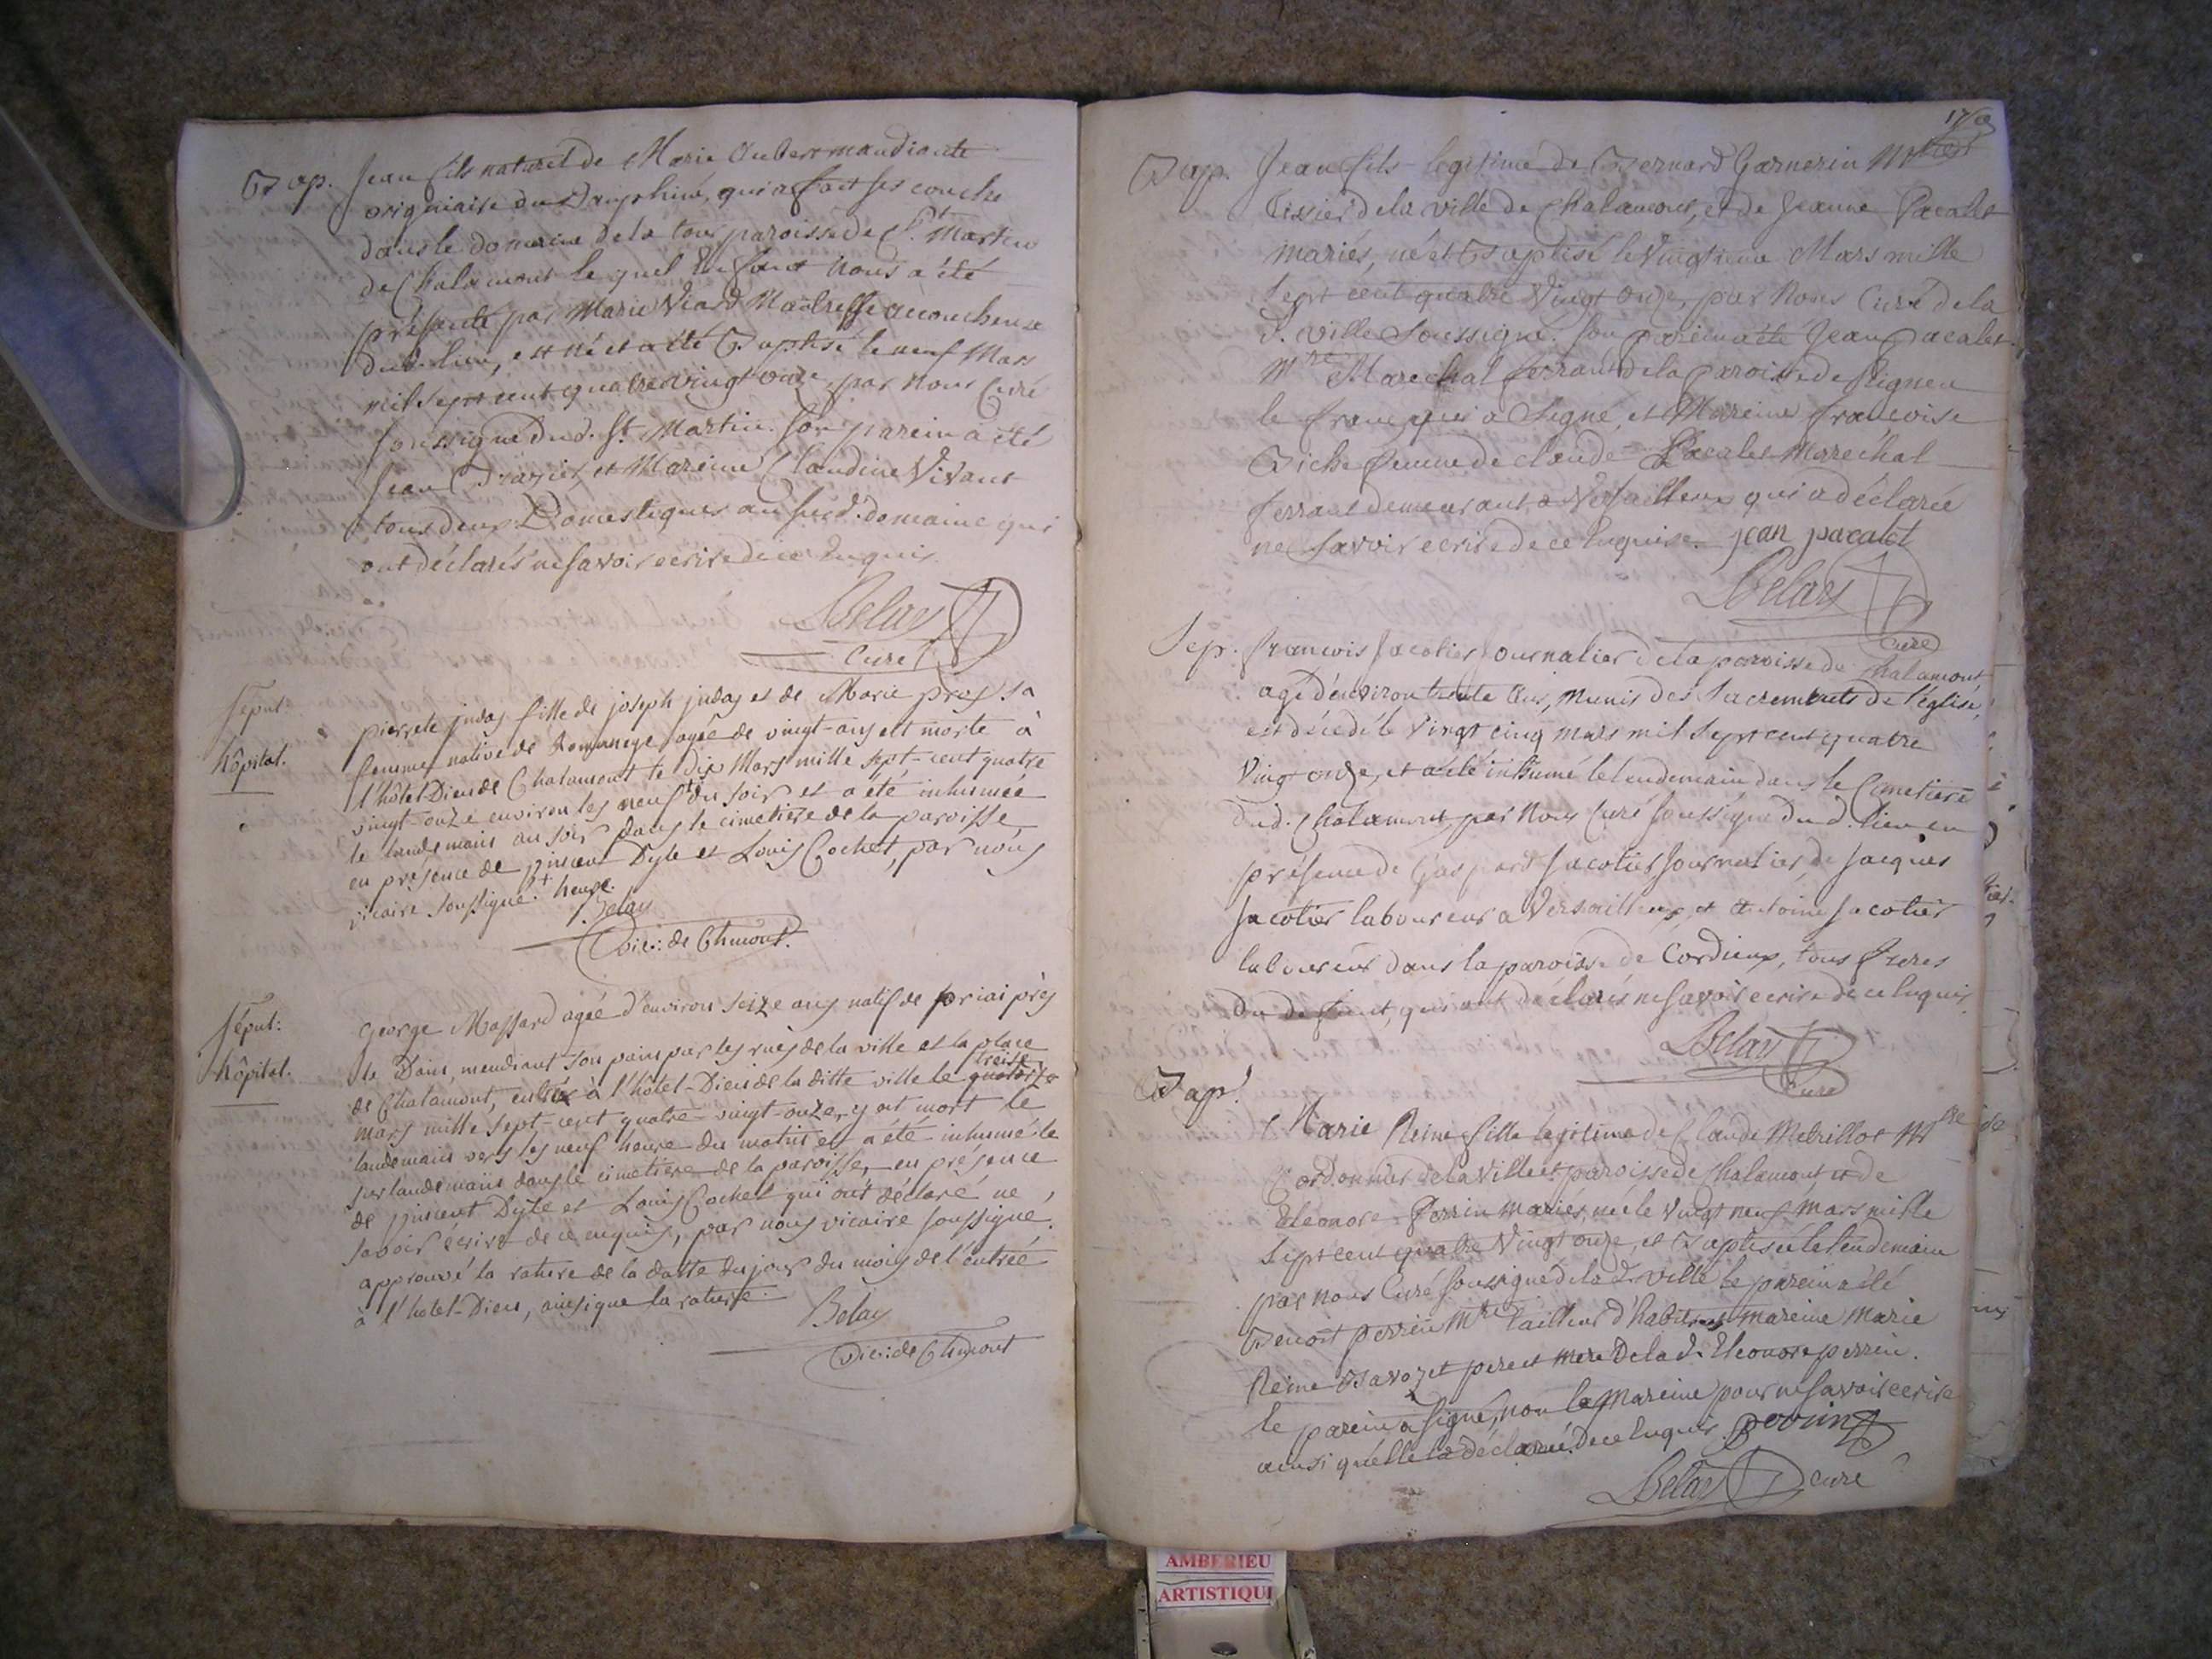 Bap. Jean fils naturel de Marie Aubert mandiante
originaire du Dauphiné, qui a fait ses couche
dans le domaine de la tour paroisse de St. Martin
de Chalamont le quel Enfant Nous a été
présenté par Marie Viard Maitresse accoucheuse
dud. lieu, est né et a été Baptisé le neuf Mars
mil sept cent quatre vingt onze, par Nous Curé
soussigné dud. St. Martin. Son parein a été
Jean et Mareine Claudine Vivant
tous deux Domestiques au susd. domaine qui
ont déclarés ne savoir ecrire de ce Enquis
Belay
Curé
Sépul:
hôpital.
pierrete judas fille de joseph judas et de Marie pros sa
femme, native de Romaneye, agée de vingt-ans est morte à
l'hôtel-Dieu de Chalamont le dix Mars mille sept-cent quatre
vingt-onze environ les neuf + du soir et a été inhumée
le landemain au soir dans le cimetière de la paroisse,
en présence de Vincent Dyle et Louis Cochet, par nous
vicaire soussigné. + heure.
Belay
vic: de Chmont.
Sépul:
hôpital.
George Massard agée d'environ seize ans natif de priai près
le Dain, mendiant son pain par les rues de la ville et la place
de Chalamont, entré à l'hôtel-Dieu de la ditte ville le quatorze
treise
mars mille sept-cent quatre-vingt-onze, y est mort le
landemain vers les neuf heure du matin et a été inhumé le
surlandemain dans le cimetière de la paroisse, en présence
de Vincent Dyle et Louis Cochet qui ont déclaré ne
savoir écrire de ce enquis, par nous vicaire soussigné.
approuvé la rature de la datte du jour du mois de l'entrée
à l'hotel-Dieu, ainsi que la rature.
Belay
Vic: de Chmont
Bap. Jean fils légitime de Bernard Garnerin Mtre
Tissier de la ville de Chalamont, et de Jeanne Pacalet
mariés, né et Baptisé le Vingtieme Mars mille
Sept cent quatre Vingt onze, par Nous Curé de la
d. ville Soussigné. Son parein a été Jean Pacalet
Mtre Marechal ferrant de la paroisse de Rigneu
le franc qui a Signé, et Mareine francoise
Biche femme de claude Pacalet Maréchal
ferrant demeurant a Versailleux qui a déclarée
ne Savoir ecrire de ce Enquise. jean pacalet
Belay
Curé
Sep. francois Jacolier Journalier de la paroisse de Chalamont
agé d'environ trente Ans, Munis des Sacrements de l'église,
est décédé le Vingt cinq Mars mil Sept cent quatre
Vingt onze, et a été inhumé le lendemain dans le Cimetiere
dud. Chalamont, par Nous Curé Soussigné du d. lieu en
présence de Gaspard Jacolier Journalier, de Jacques
Jacolier laboureur a Versailleux, et Antoine Jacolier
laboureur dans la paroisse de Cordieux, tous freres
du defunt, qui ont déclarés ne Savoir ecrire de ce Enquis,
Belay
Curé
Bap.
Marie Reine fille légitime de Claude Metrillot Mtre
Cordonnier de la Ville et paroisse de Chalamont et de
Eleonore Perrin mariés, née le Vingt neuf Mars mille
Sept cent quatre Vingt onze, et Baptisée le lendemain
par nous Curé Soussigné de la d. ville le parein a été
Benoit perrin Mtre Tailleur d'habits et mareine Marie
Reine Bavozet pere et mere de la d. Eleonore perrin.
le parein a Signé, non la Mareine pour ne Savoir ecrire
ainsi qu'elle l'a déclarée de ce Enquis. Perrin
Belay curé
AMBERIEU
ARTISTIQU